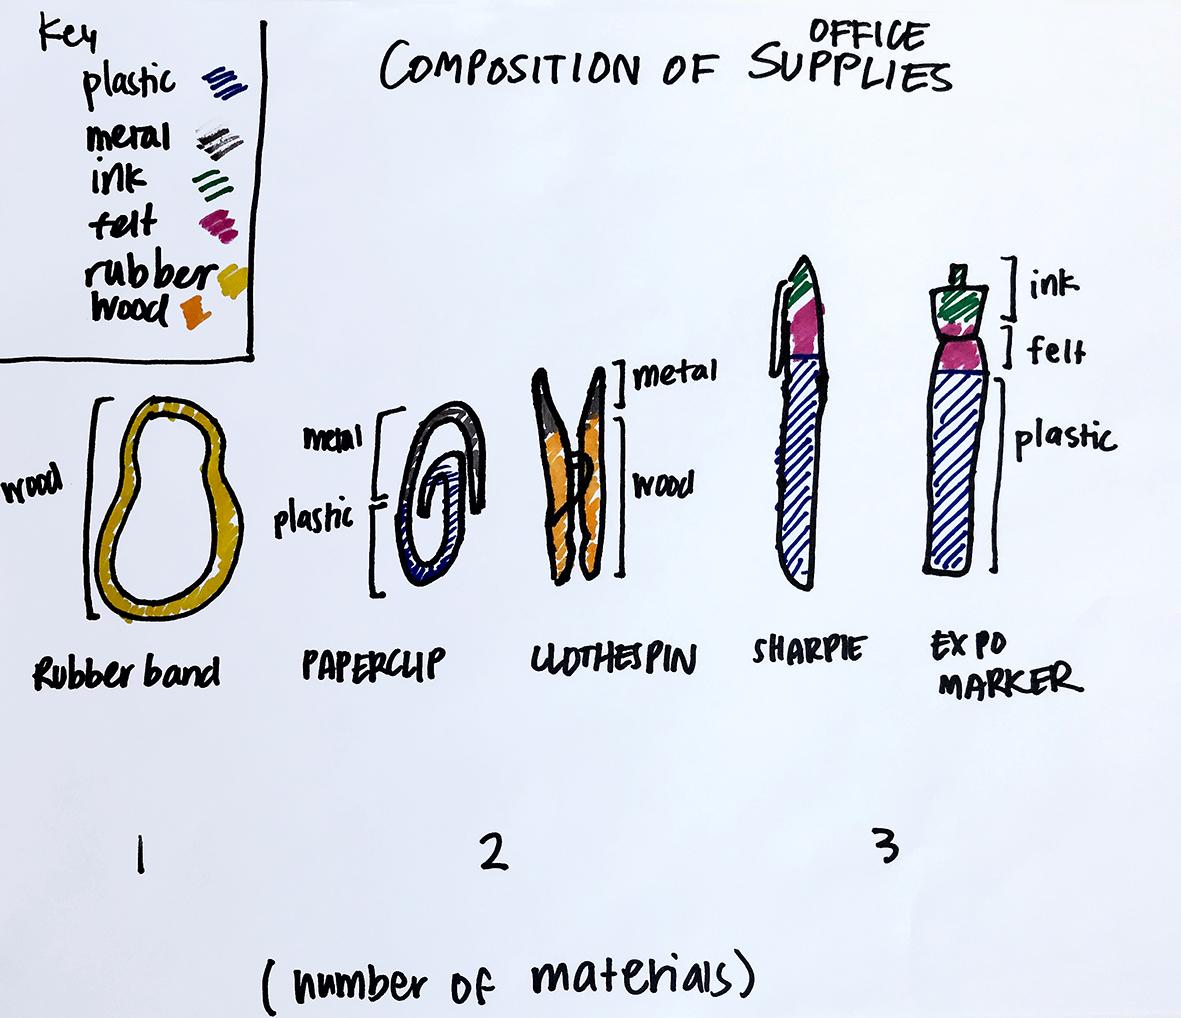 Key
plastic
metal
ink
felt
rubber
wood
OFFICE
COMPOSITION OF SUPPLIES
wood
metal
plastic
metal
wood
ink
felt
plastic
Rubber band
PAPERCLIP
CLOTHESPIN
SHARPIE
EXPO
MARKER
1 2 3
(number of materials)